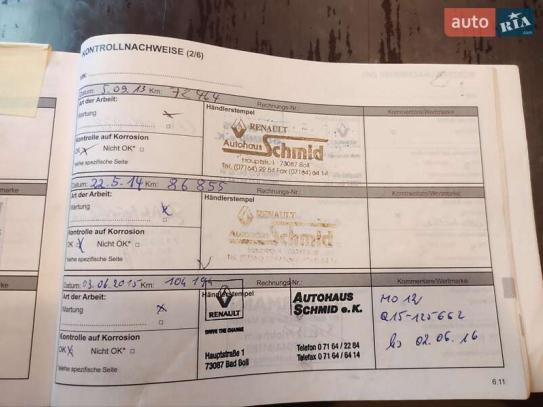 auto RIA.com
KONTROLLNACHWEISE (2/6)
VIN:
Datum: 5.09.13 Km: 72464
Rechnungs-Nr.:
Art der Arbeit:
Händlerstempel
Kommentare/Wertmarke
Wartung
RENAULT
Autohaus Schmid
Hauptstr. 1 · 73087 Boll
Tel. (07164) 22 84 Fax (07164) 64 14
Kontrolle auf Korrosion
OK Nicht OK*
siehe spezifische Seite
Datum: 22.5.14 Km: 86855
Rechnungs-Nr.:
Art der Arbeit:
Händlerstempel
Kommentare/Wertmarke
Wartung
RENAULT
Autohaus Schmid
Kontrolle auf Korrosion
OK Nicht OK*
siehe spezifische Seite
Datum: 03.06.2015 Km: 104194
Rechnungs-Nr.:
Kommentare/Wertmarke
Art der Arbeit:
Händlerstempel
Wartung
RENAULT
DRIVE THE CHANGE
AUTOHAUS
SCHMID e.K.
MO 12/
Q15-125662
bis 02.06.16
Kontrolle auf Korrosion
OK Nicht OK*
siehe spezifische Seite
Hauptstraße 1
73087 Bad Boll
Telefon 0 71 64/ 22 84
Telefax 0 71 64/ 64 14
6.11